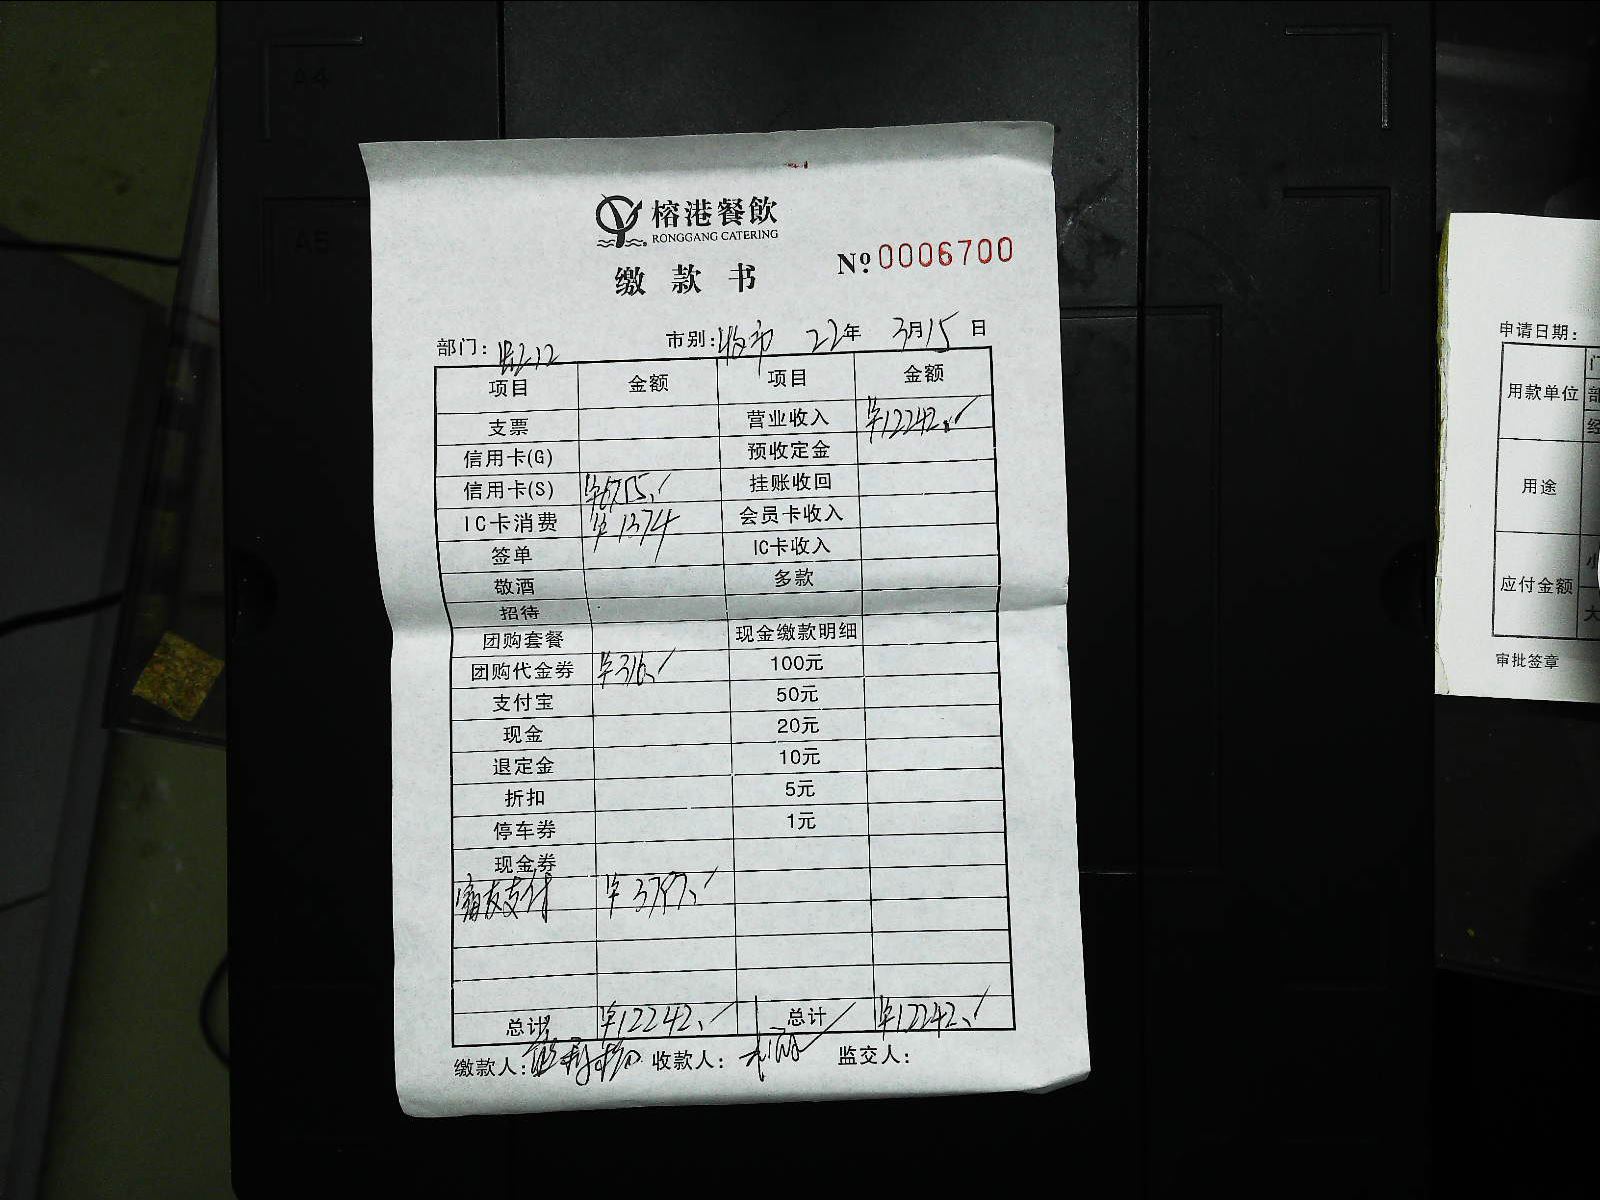 榕港餐飲
RONGGANG CATERING
缴款书 Nº 0006700
部门: 市别: 收市 22年 3月15日
项目 金额 项目 金额
支票 营业收入 ¥12242.
信用卡(G) 预收定金
信用卡(S) ¥6755. 挂账收回
IC卡消费 ¥1374 会员卡收入
签单 IC卡收入
敬酒 多款
招待
团购套餐 现金缴款明细
团购代金券 ¥316. 100元
支付宝 50元
现金 20元
退定金 10元
折扣 5元
停车券 1元
现金券
支付 ¥3797.
总计 ¥12242. 总计 ¥12242.
缴款人: 收款人: 监交人:
A4
A5
申请日期:
用款单位
用途
应付金额
审批签章